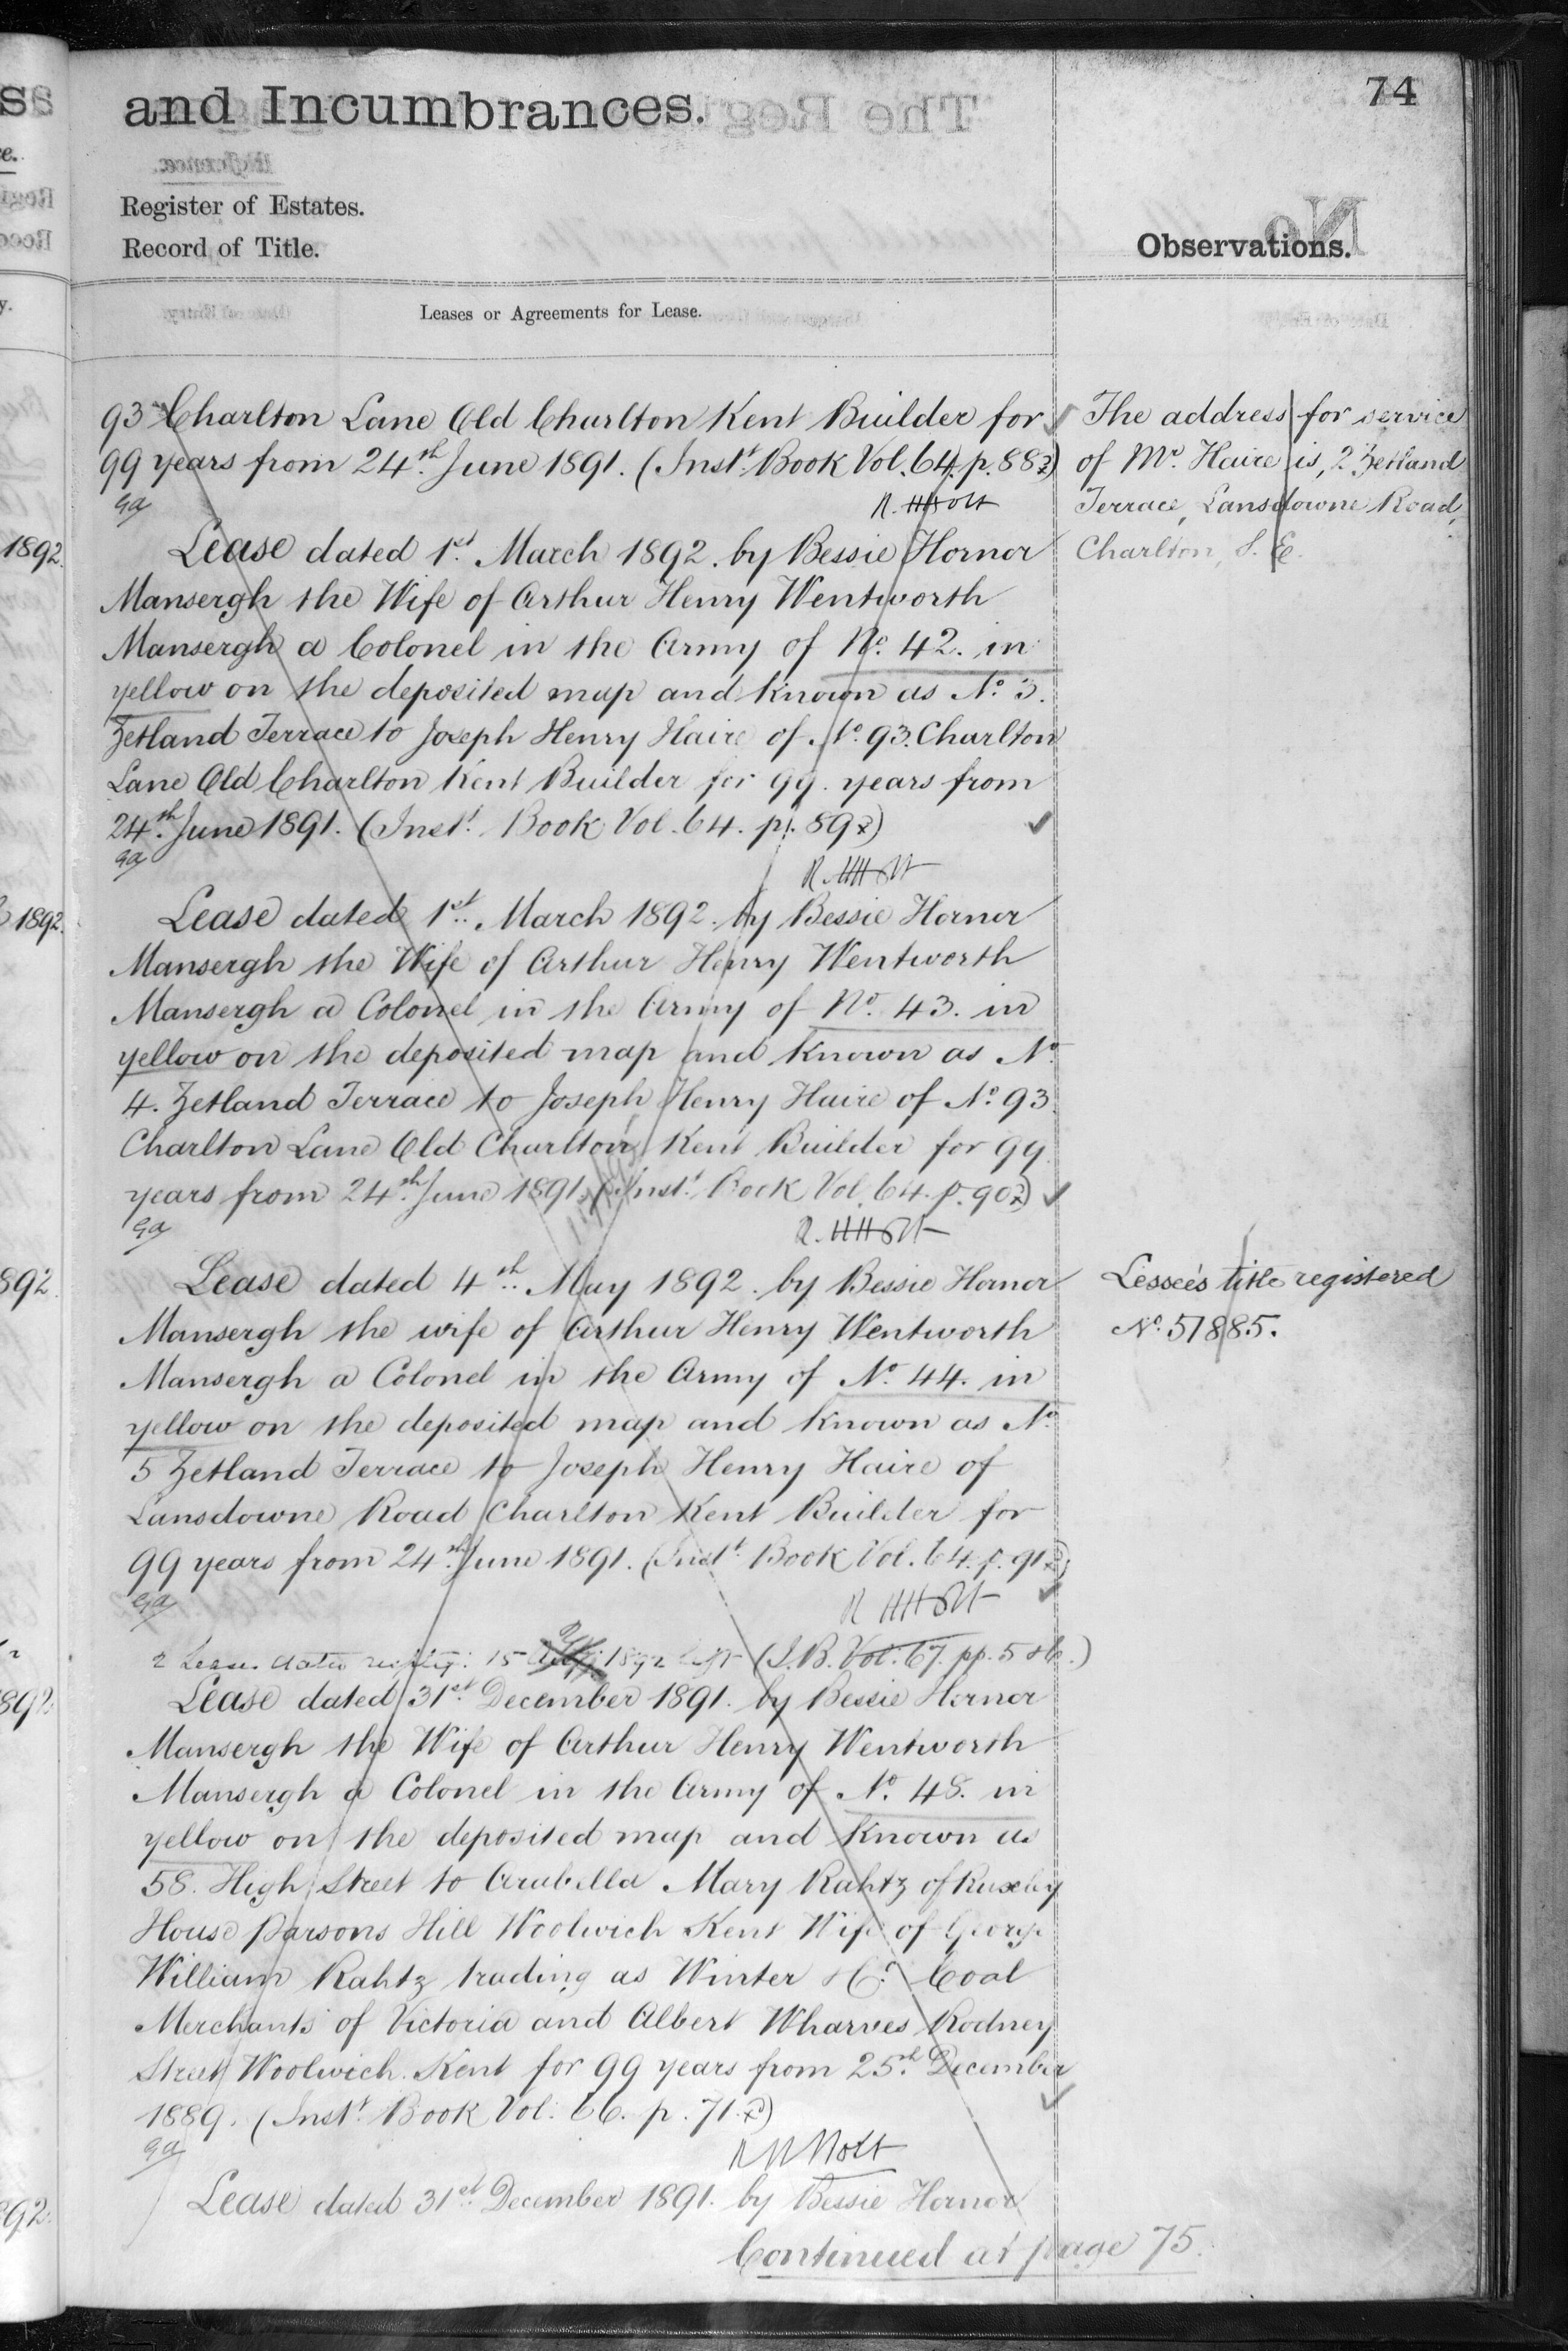 74
and Incumbrances.
Register of Estates.
Record of Title.
Observations.
Leases or Agreements for Lease.
93 Charlton Lane Old Charlton Kent Builder for
99 years from 24th June 1891. (Inst. Book Vol. 64. p. 88)
The address for service
of Mr. Haire is, 2 Zetland
Terrace, Lansdowne Road,
Charlton, S.E.
R. HHolt
1892.
Lease dated 1st March 1892. by Bessie Hornor
Mansergh the Wife of Arthur Henry Wentworth
Mansergh a Colonel in the Army of No. 42. in
yellow on the deposited map and known as No. 3.
Zetland Terrace to Joseph Henry Haire of No. 93. Charlton
Lane Old Charlton Kent Builder for 99. years from
24th June 1891. (Inst. Book Vol. 64. p. 89)
R. HHolt
1892.
Lease dated 1st March 1892. by Bessie Hornor
Mansergh the Wife of Arthur Henry Wentworth
Mansergh a Colonel in the Army of No. 43. in
yellow on the deposited map and known as No
4. Zetland Terrace to Joseph Henry Haire of No. 93
Charlton Lane Old Charlton Kent Builder for 99
years from 24th June 1891. (Inst. Book Vol. 64. p. 90)
R. HHolt
892.
Lease dated 4th May 1892. by Bessie Hornor
Mansergh the wife of Arthur Henry Wentworth
Mansergh a Colonel in the Army of No. 44. in
yellow on the deposited map and known as No
5 Zetland Terrace to Joseph Henry Haire of
Lansdowne Road Charlton Kent Builder for
99 years from 24th June 1891. (Inst. Book Vol. 64. p. 91)
Lessee's title registered
No. 51885.
R HHolt
2 15 1892 (I.B. Vol. 67. pp. 5 & 6.)
892.
Lease dated 31st December 1891. by Bessie Hornor
Mansergh the Wife of Arthur Henry Wentworth
Mansergh a Colonel in the Army of No. 48. in
yellow on the deposited map and known as
58. High Street to Arabella Mary Rahtz of Ruxley
House Parsons Hill Woolwich Kent Wife of George
William Rahtz trading as Winter & Co. Coal
Merchants of Victoria and Albert Wharves Rodney
Street Woolwich. Kent for 99 years from 25th December
1889. (Inst. Book Vol. 66. p. 71.)
R HHolt
92.
Lease dated 31st December 1891. by Bessie Hornor
Continued at page 75.